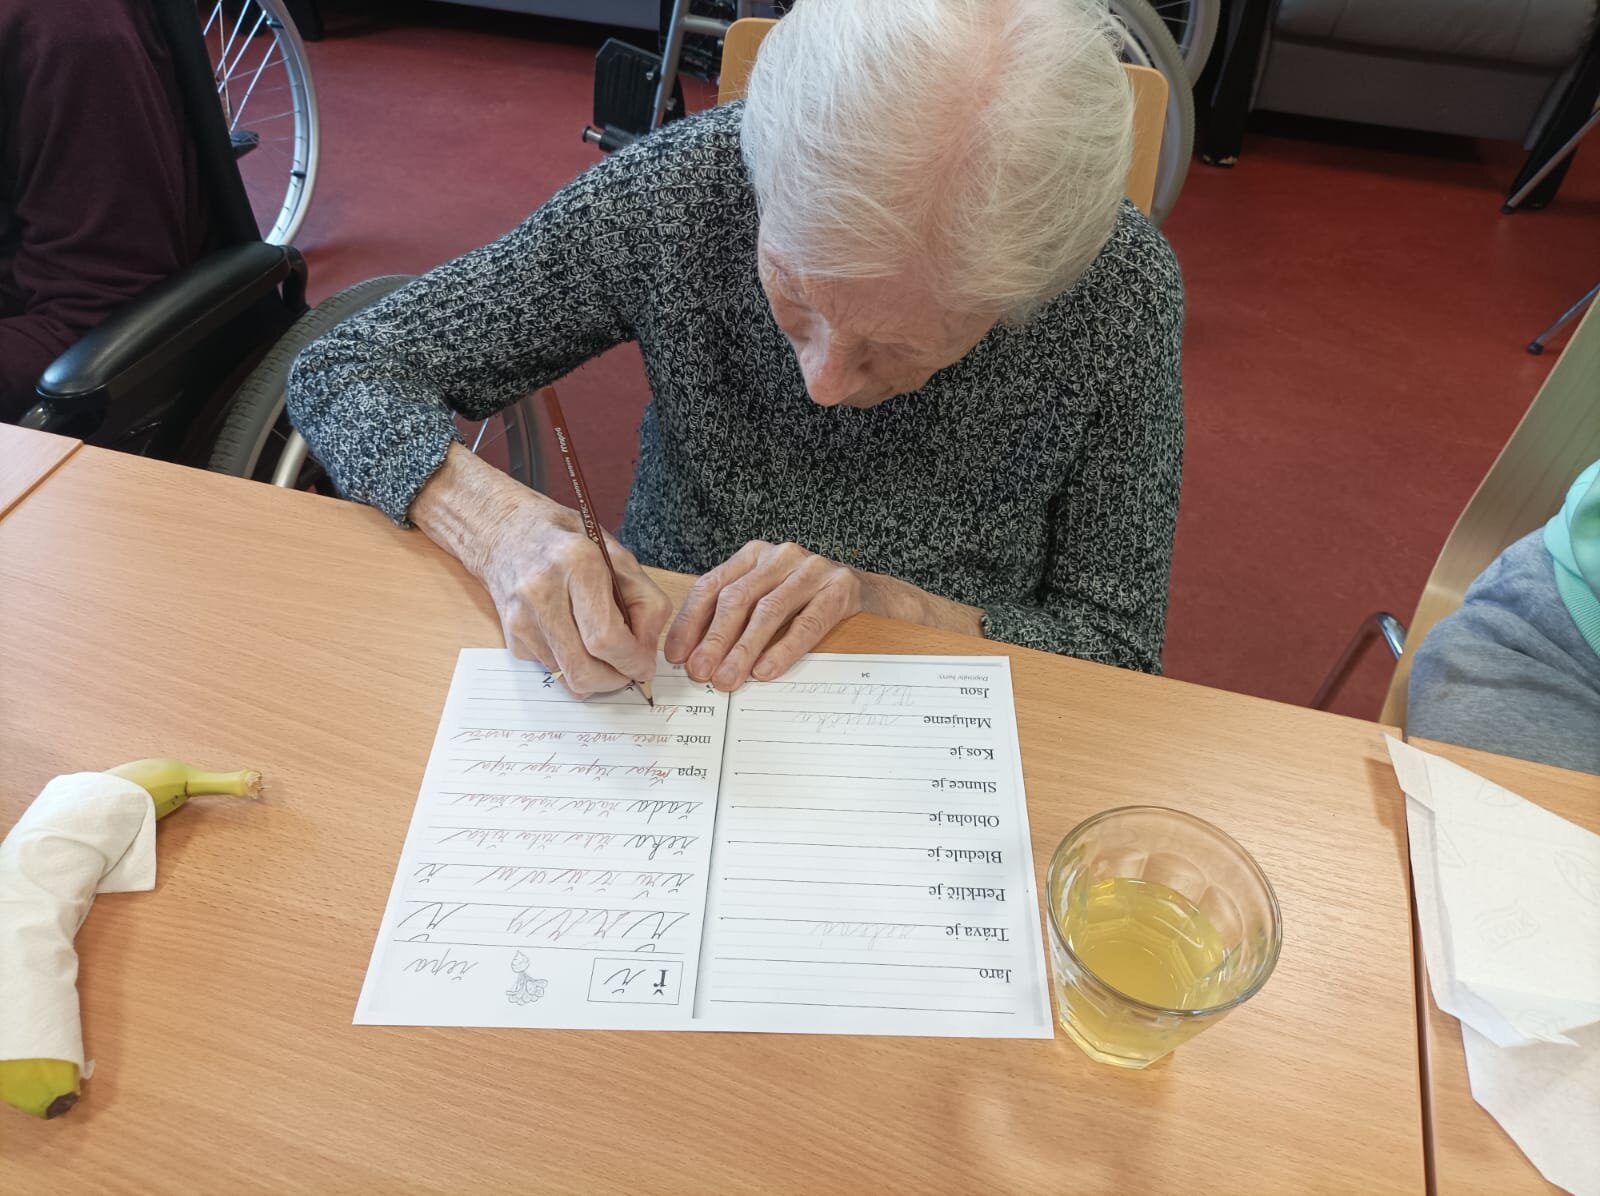 Ř ř
řepa
řeka řeka řeka řeka
řada řada řada řada
řepa řepa řepa řepa řepa
moře moře moře moře moře
kuře kuř
Jaro
Tráva je zelená
Petrklíč je
Bledule je
Obloha je
Slunce je
Kos je
Malujeme vajíčka
Jsou Velikonoce
34
Doplňujte barvy.